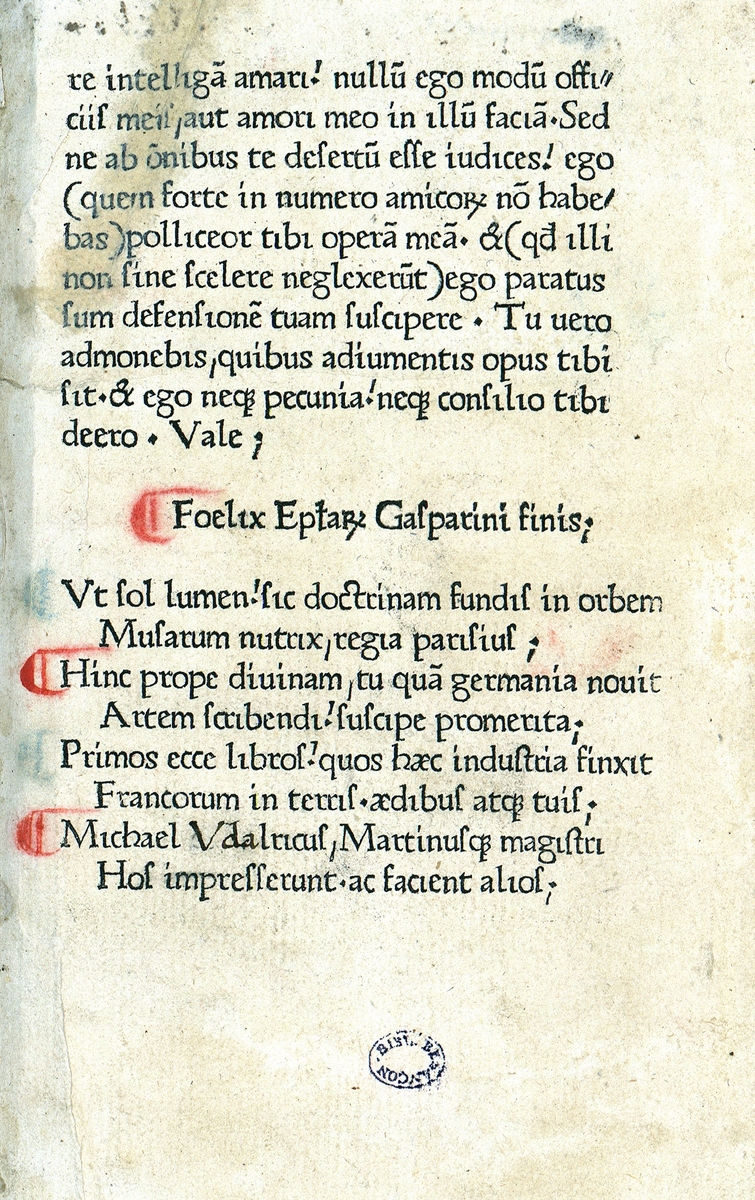 re intelligã amari! nullũ ego modũ offi//
ciiſ meiſ,aut amori meo in illũ faciã.Sed
ne ab õnibus te deſertũ eſſe iudices! ego
(quem forte in numero amicoꝝ nõ habe/
bas)polliceor tibi operã meã. &(qđ illi
non ſine ſcelere neglexerũt)ego paratus
ſum defenſionẽ tuam ſuſcipere . Tu uero
admonebis,quibus adiumentis opus tibi
ſit.& ego neqꝫ pecunia!neqꝫ conſilio tibi
deero . Vale ;
Foelix Epłaꝝ Gaſparini finis;
Vt ſol lumen!ſic doctrinam fundiſ in orbem
Muſarum nutrix,regia pariſiuſ ;
Hinc prope diuinam,tu quã germania nouit
Artem ſcribendi!ſuſcipe promerita;
Primos ecce libroſ!quos hæc induſtria finxit
Francorum in terriſ.ædibuſ atqꝫ tuiſ;
Michael Vdalricuſ,Martinuſqꝫ magiſtri
Hoſ impreſſerunt.ac facient alioſ;
BIBL. BESANÇON